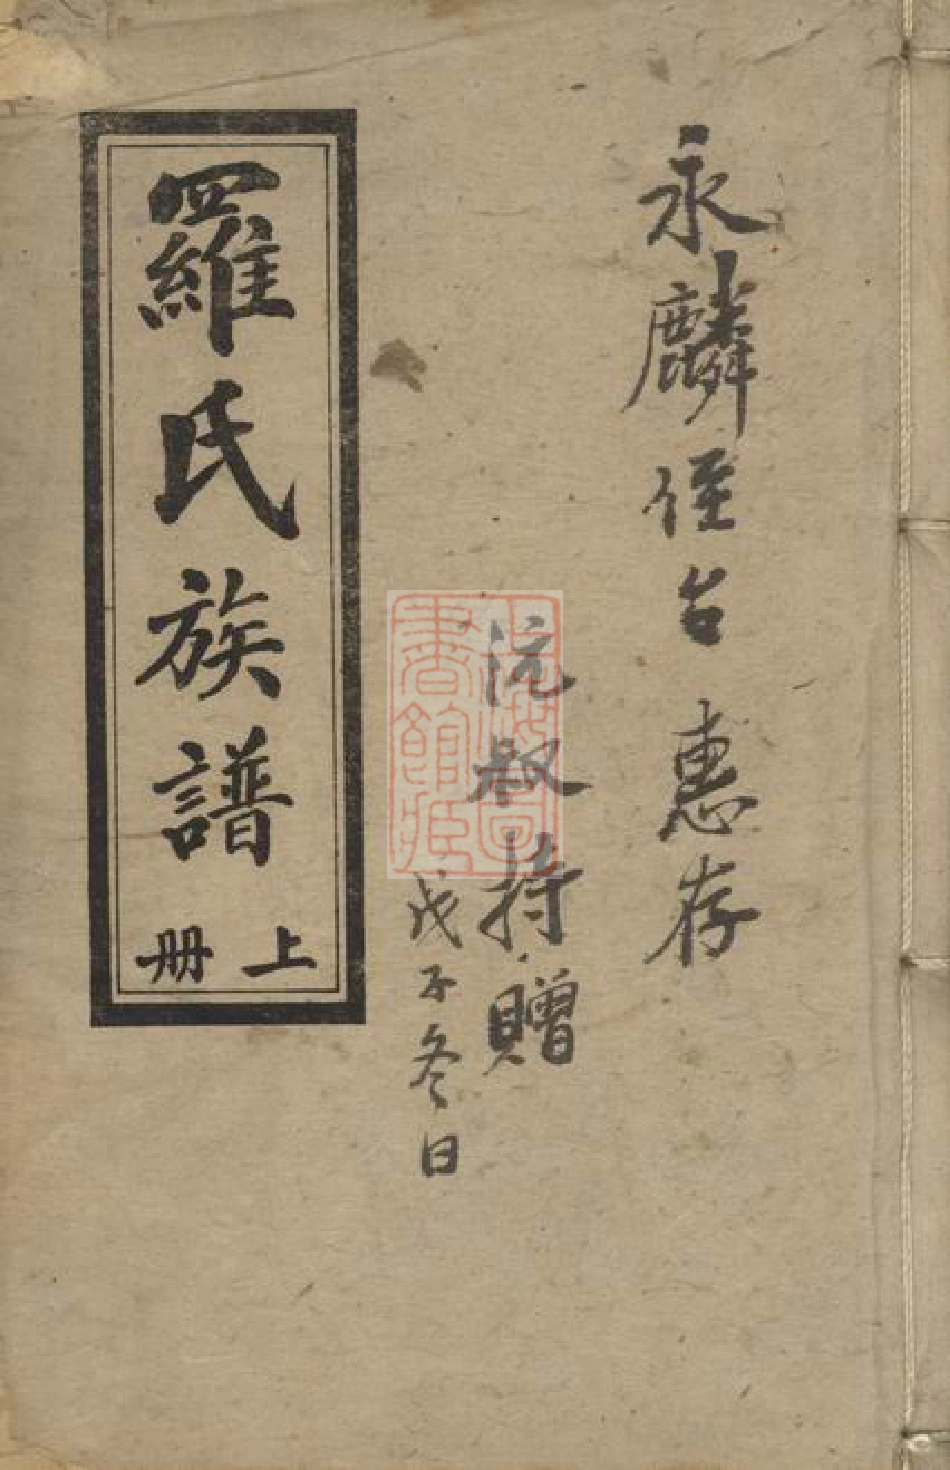 永麟侄台惠存
沅叔持贈
戊子冬日
羅氏族譜
上册
上海圖書館藏